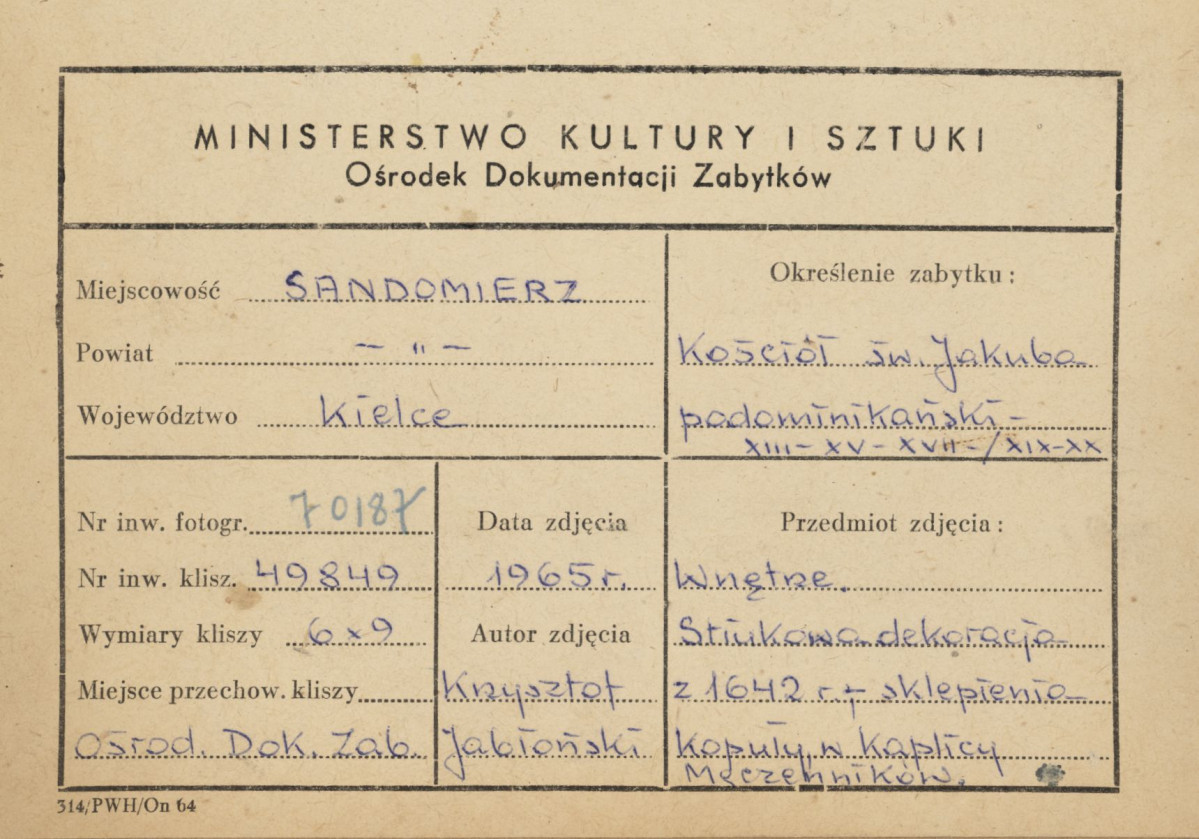 MINISTERSTWO KULTURY I SZTUKI
Ośrodek Dokumentacji Zabytków
Miejscowość SANDOMIERZ
Powiat — " —
Województwo Kielce
Określenie zabytku:
Kościół św. Jakuba
podominikański -
XIII - XV - XVII - / XIX-XX
Nr inw. fotogr. 70187
Nr inw. klisz. 49849
Wymiary kliszy 6x9
Miejsce przechow. kliszy
Ośrod. Dok. Zab.
Data zdjęcia
1965 r.
Autor zdjęcia
Krzysztof
Jabłoński
Przedmiot zdjęcia:
Wnętrze.
Stiukowa dekoracja
z 1642 r. - sklepienia
Kopuły w Kaplicy
Męczenników.
314/PWH/On 64